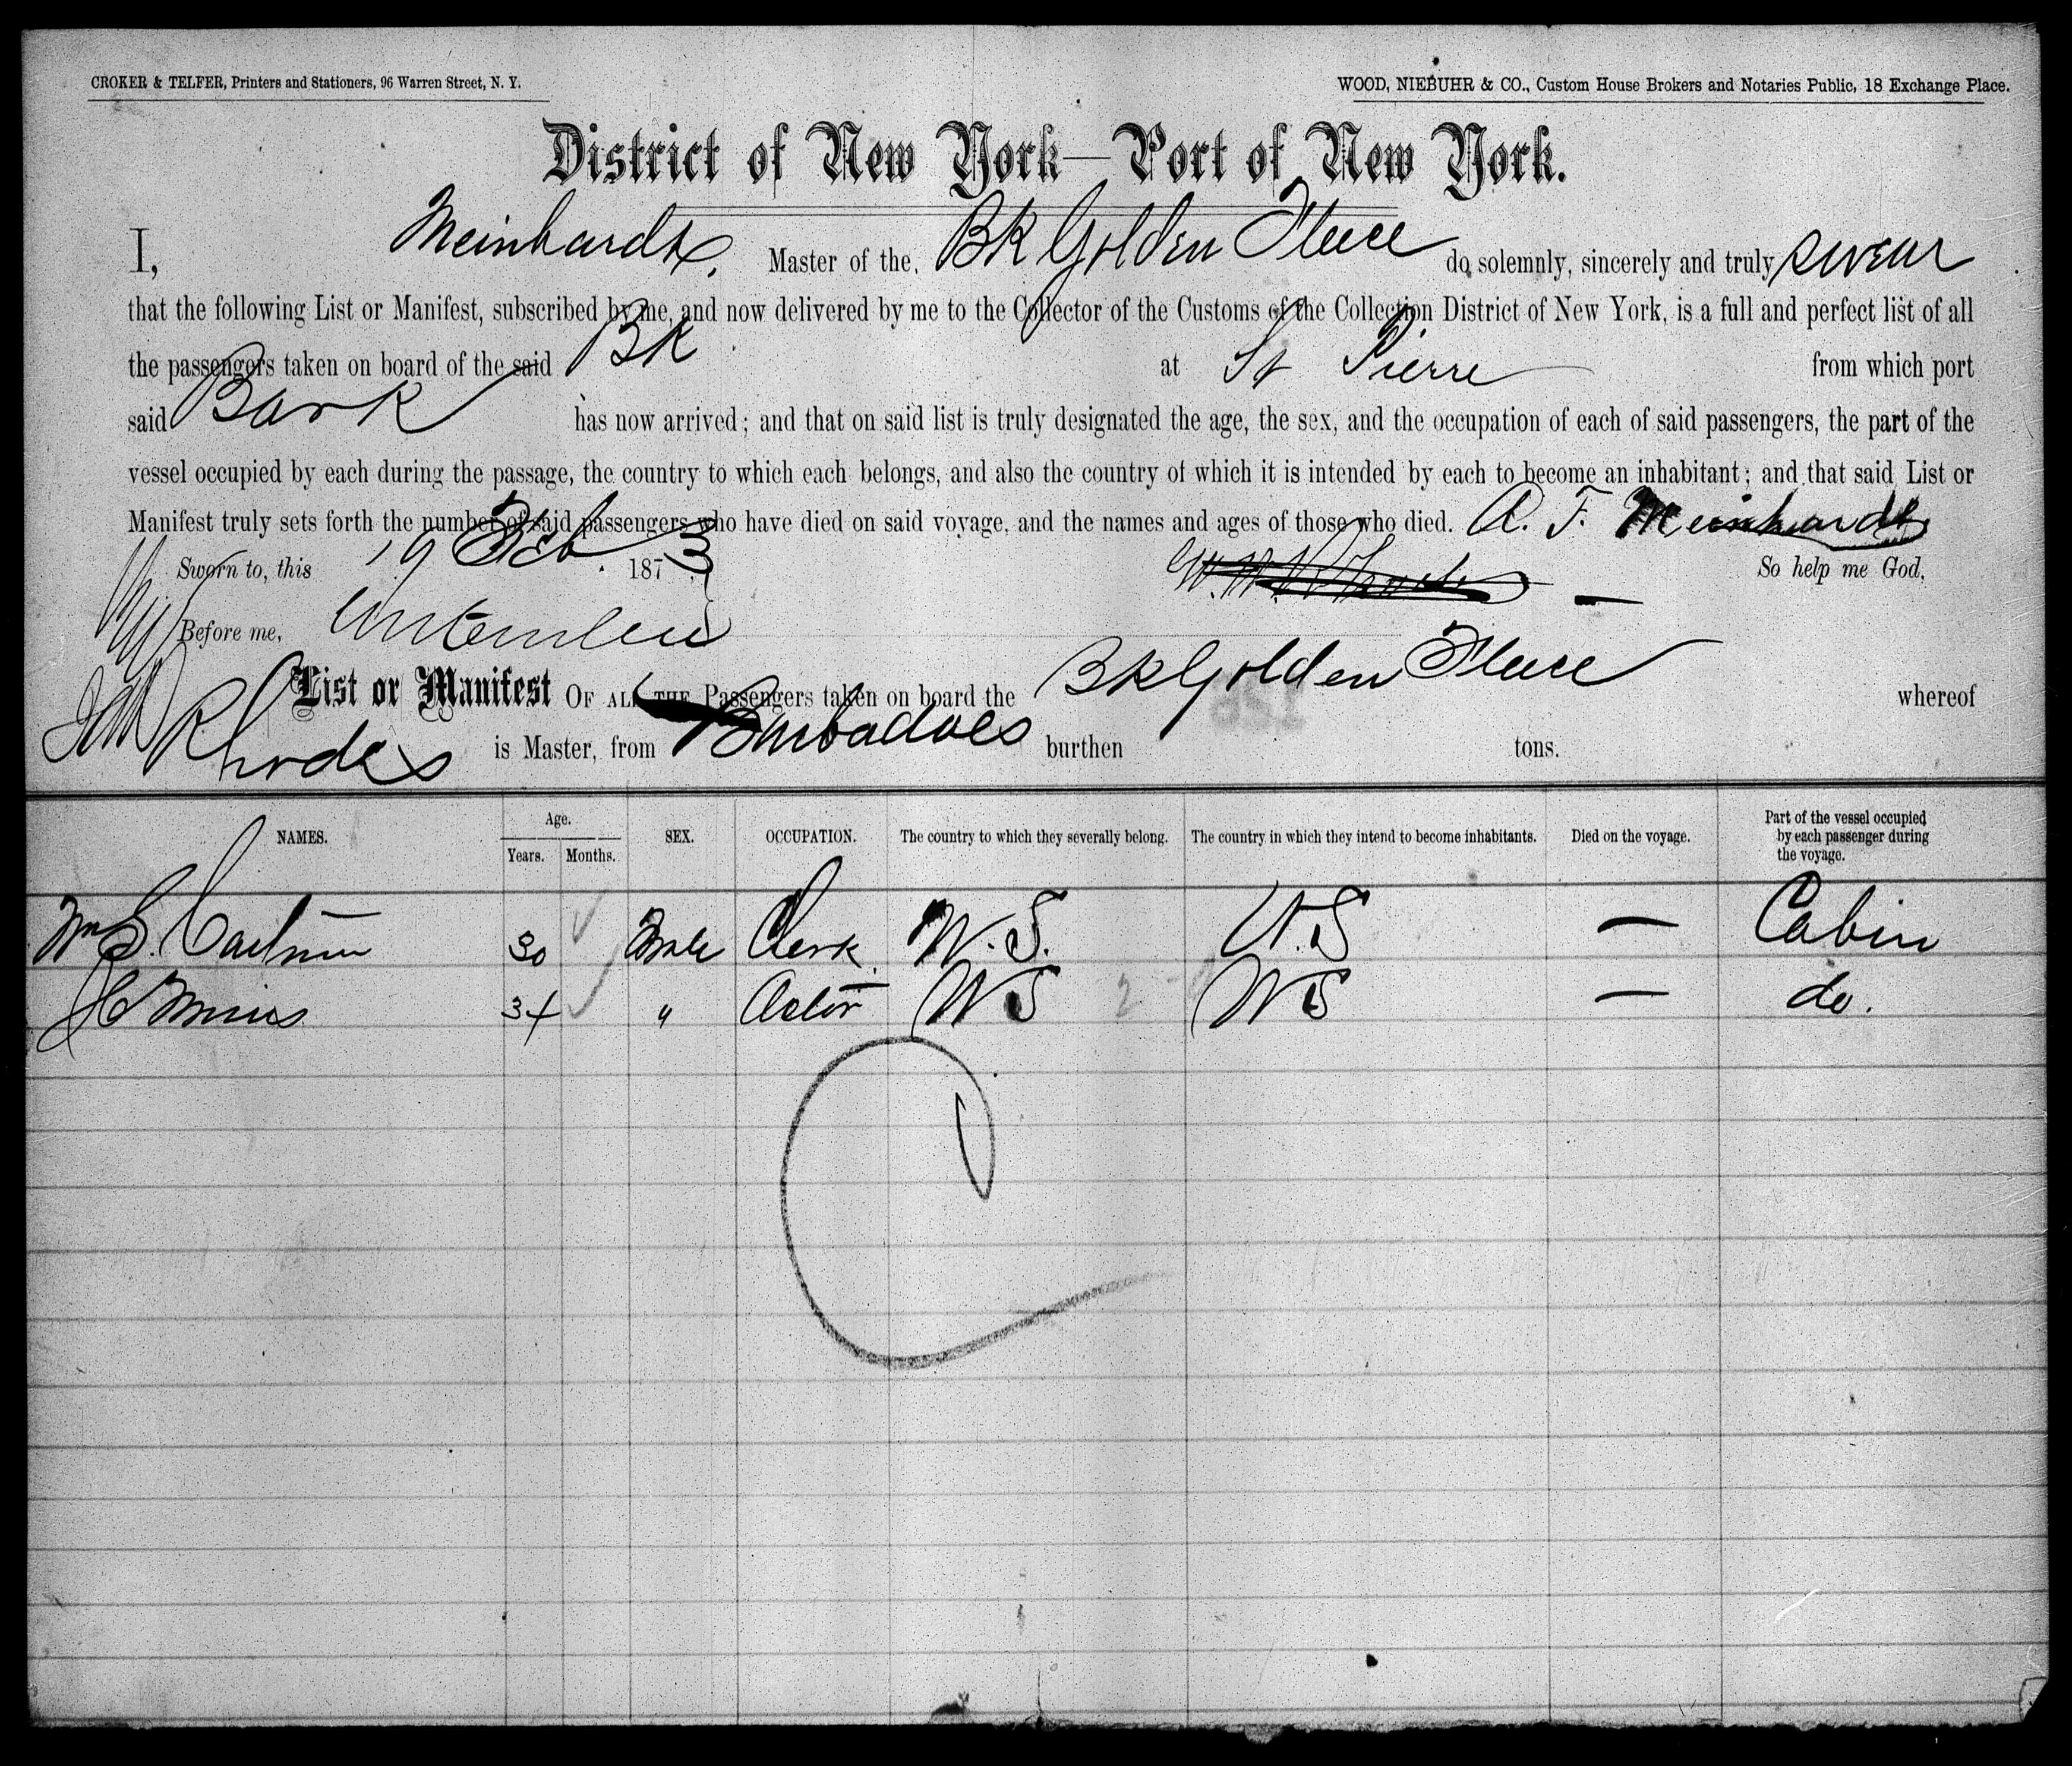 CROKER & TELFER, Printers and Stationers, 96 Warren Street, N. Y.
WOOD, NIEBUHR & CO., Custom House Brokers and Notaries Public, 18 Exchange Place.
District of New York—Port of New York.
I, Meinhardt, Master of the, Bk Golden Fleece do solemnly, sincerely and truly swear
that the following List or Manifest, subscribed by me, and now delivered by me to the Collector of the Customs of the Collection District of New York, is a full and perfect list of all
the passengers taken on board of the said Bk at St Pierre from which port
said Bark has now arrived; and that on said list is truly designated the age, the sex, and the occupation of each of said passengers, the part of the
vessel occupied by each during the passage, the country to which each belongs, and also the country of which it is intended by each to become an inhabitant; and that said List or
Manifest truly sets forth the number of said passengers who have died on said voyage, and the names and ages of those who died. A. F. Meinhardt
Sworn to, this 19 Feb 1873 So help me God,
Before me,
List or Manifest OF ALL THE Passengers taken on board the Bk Golden Fleece whereof
Rhodes is Master, from Barbadoes burthen tons.
NAMES. Age. Years. Months. SEX. OCCUPATION. The country to which they severally belong. The country in which they intend to become inhabitants. Died on the voyage. Part of the vessel occupied by each passenger during the voyage.
Wm S. 30 Male Clerk U.S. U.S — Cabin
34 " Actor US US — do.